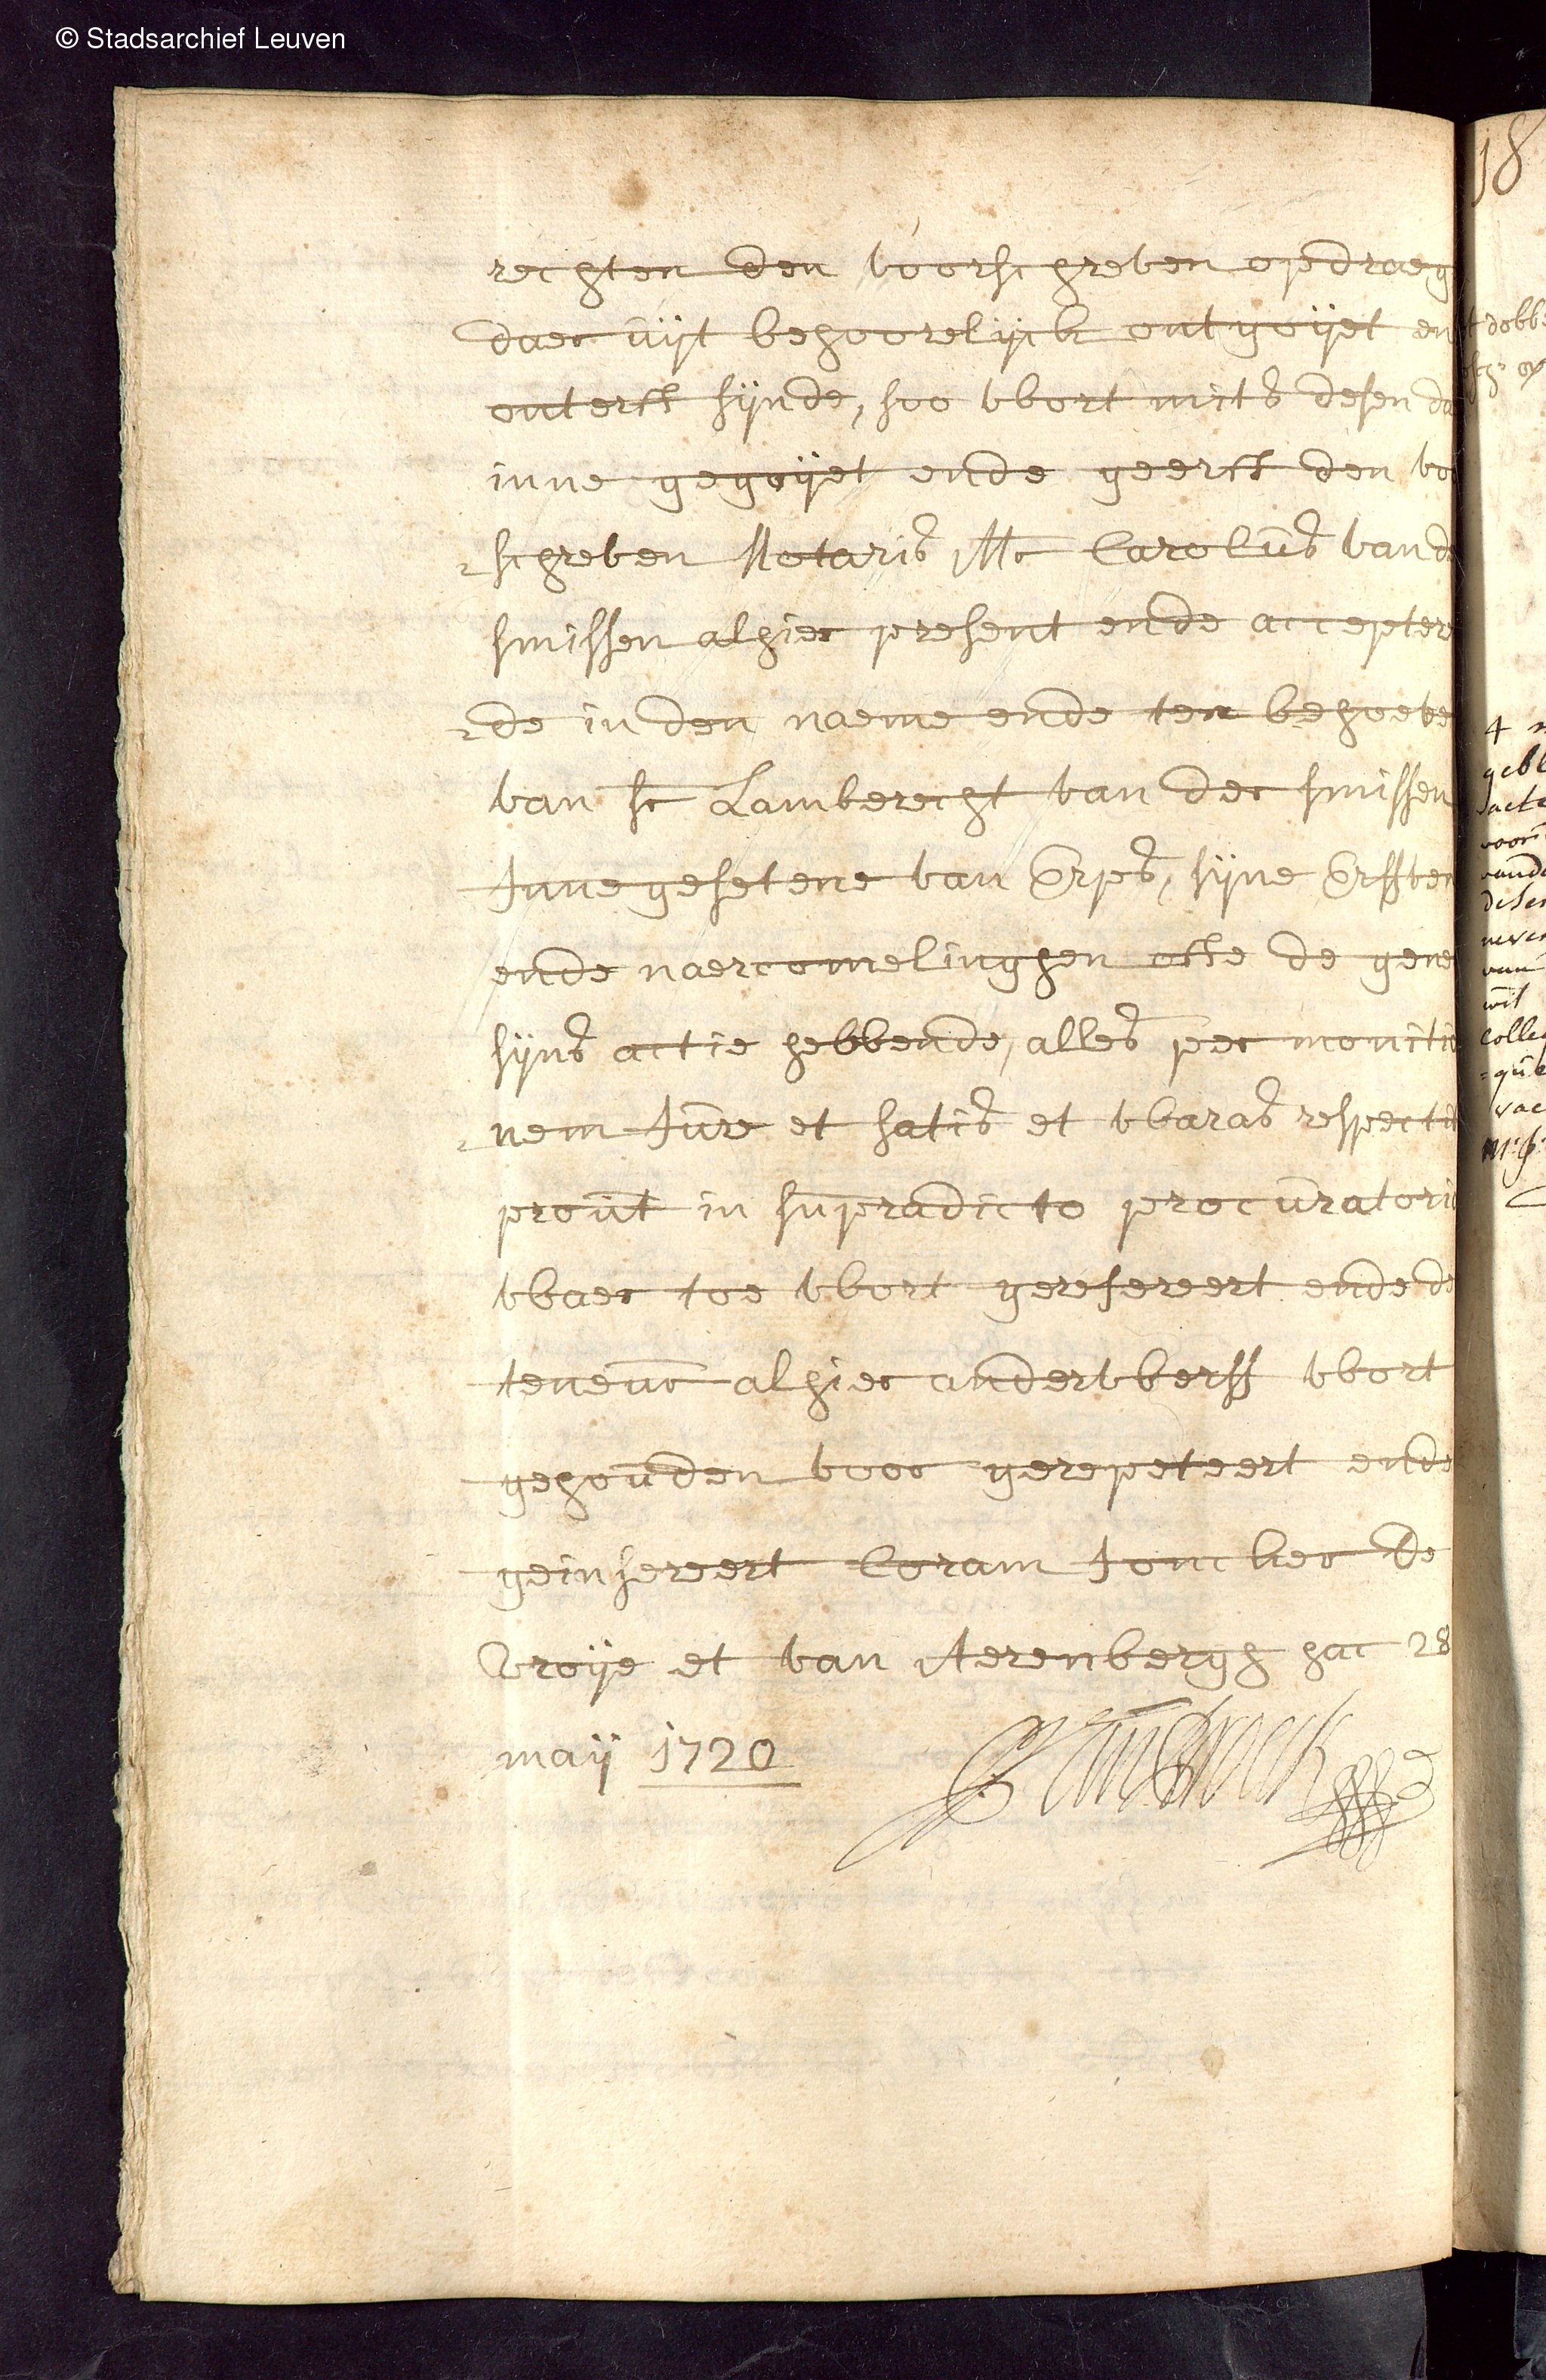 © Stadsarchief Leuven
18
rechten den voorschreven opdraeg
daer uijt behoorelijck ontgoijet en
onterft sijnde, soo wort mits desen da
inne gegoijet ende geerft den vo
schreven Notaris Mr Carolus vand
smissen alhier present ende accepter
de in den naeme ende ten behoeve
van sr Lamberecht van der smissen
Innegesetene van Erps, sijne Erffven
ende naercomelinghen ofte de gene
sijns actie hebbende, alles per monitio
nem Jure et satis et waras respectiv
prout in supradicto procuratorio
waer toe wort gerefereert ende de
teneur alhier anderwerff wort
gehouden voor gerepeteert ende
geinsereert Coram Joncker de
Broije et van Aerenbergh hac 28
maij 1720